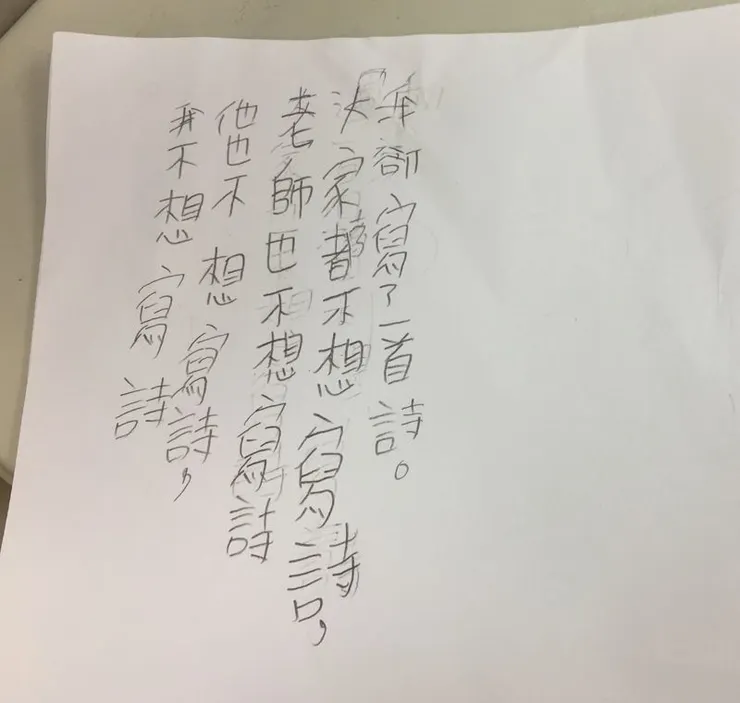 我不想寫詩
他也不想寫詩，
老師也不想寫詩
大家都不想寫詩，
我卻寫了一首詩。